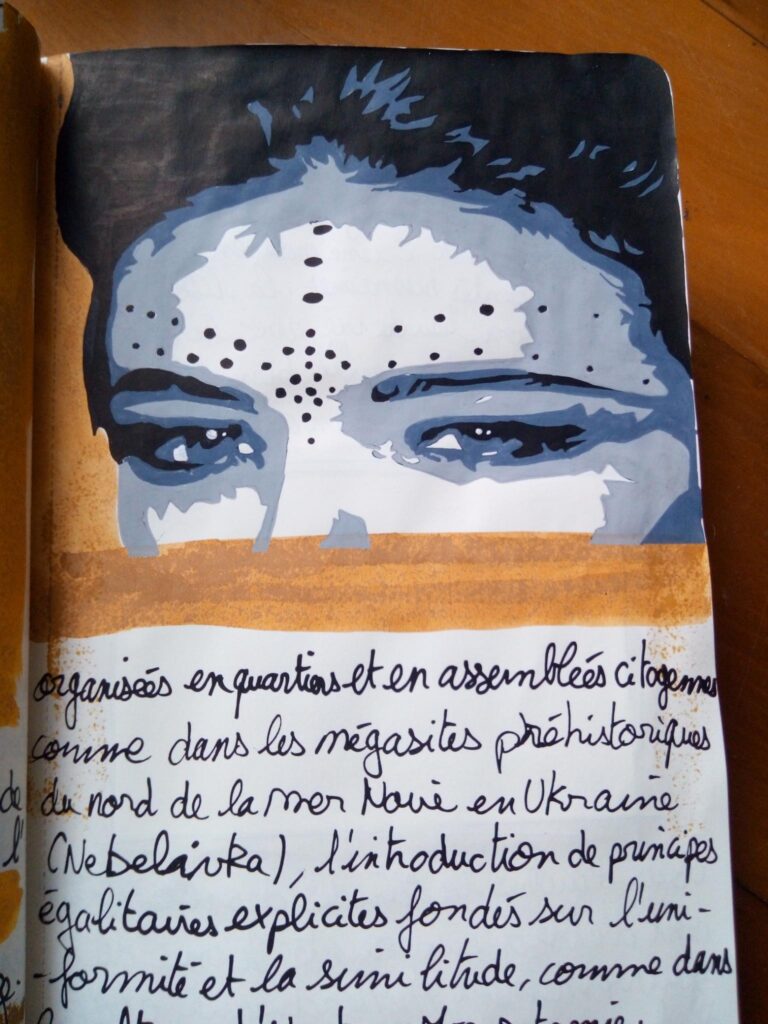 organisées en quartiers et en assemblées citoyennes
comme dans les mégasites préhistoriques
du nord de la mer Noire en Ukraine
(Nebelivka), l'introduction de principes
égalitaires explicites fondés sur l'uni-
-formité et la similitude, comme dans
de
l'